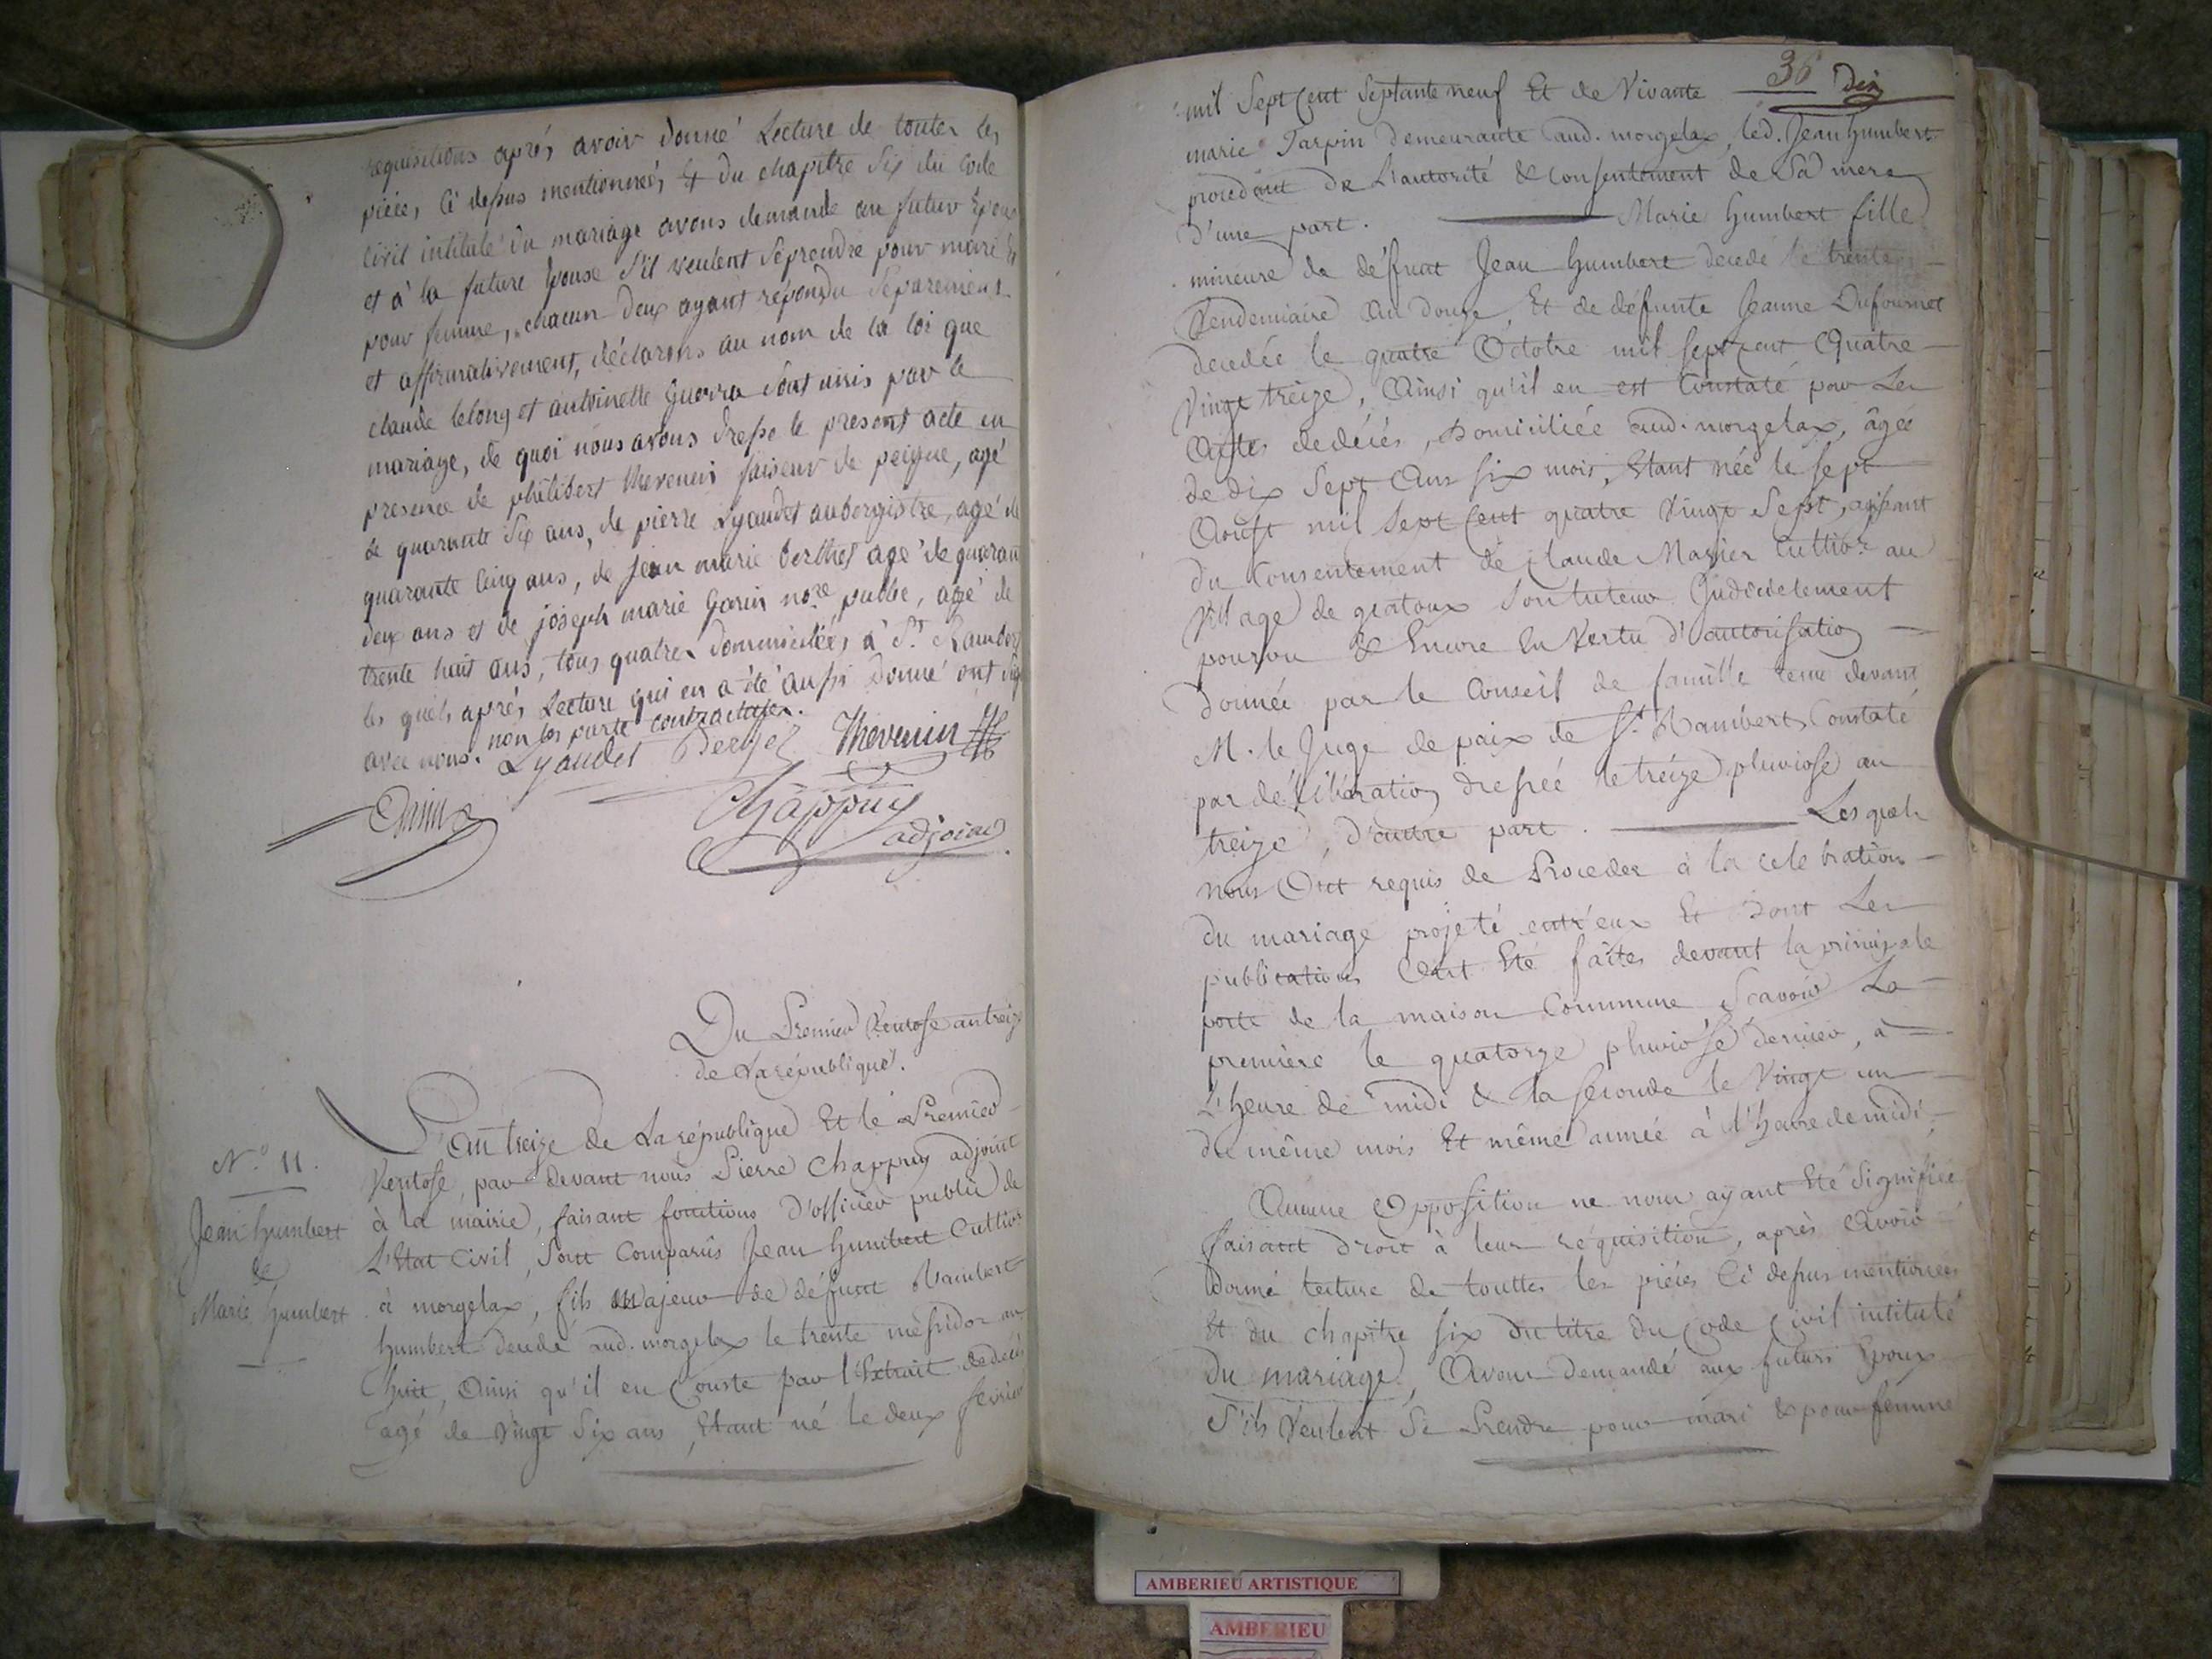 requisitions aprés avoir donné Lecture de toutes les
piéces ci dessus mentionnées Et du chapitre Six du Code
Civil intitulé du mariage avons demandé au futur Epoux
et à la future Epouse S'il veulent Se prendre pour mari Et
pour femme, chacun deux ayant répondu Séparément
et affirmativement, déclarons au nom de la loi que
claude lelong et antoinette Guerra sont unis par le
mariage, de quoi nous avons dressé le present acte en
presence de philibert thevenin faiseur de peigne, agé
de quarante Six ans, de pierre Lyaudet aubergistre, agé de
quarante Cinq ans, de jean marie berthet agé de quarante
deux ans et de joseph marie Garin nore public, agé de
trente huit ans, tous quatres dommiciliées à St. Rambert
les quels aprés Lecture qui en a été aussi donné ont signé
avec nous. non les partie contractantes.
Lyaudet Berthet Thevenin
Garin
Chappuy
adjoint
Du Premier Ventose an treize
de La république.
N.o 11.
Jean humbert
&
Marie humbert
L'an treize de La république Et le Premier
Ventose, par devant nous Pierre Chappuy adjoint
à la mairie, faisant fonctions d'officier public de
L'Etat Civil, Sont Comparûs Jean humbert Cultivr
à morgelax, fils majeur de défunt Rambert
humbert decedé aud. morgelax le trente messidor an
huit, Ainsi qu'il en Conste par l'Extrait de decés
agé de Vingt Six ans, Etant né le deux fevrier
36 dix
mil Sept Cent Septante neuf Et de Vivante
marie Tarpin demeurante aud. morgelax, led. Jean humbert
procedant de L'autorité & Consentement de Sa mere
d'une part. Marie humbert fille
mineure de défunt Jean humbert decedé le trente
Vendemiaire An douze, Et de défunte Jeanne Dufournet
decedée le quatre Octobre mil sept cent Quatre
Vingt treize, Ainsi qu'il en est Constaté par Les
Actes de décés, Domiciliée aud. morgelax, âgée
de dix Sept Ans six mois, Etant née le sept
Aoust mil Sept Cent quatre Vingt Sept, agissant
du Consentement de Claude Marier Cultivr. au
Village de gratoux Son tuteur Judicielement
pourvu & Encore En Vertu d'autorisation
donnée par le Conseil de famille tenu devant
M. le Juge de paix de St. Rambert, Constaté
par délibération dressée le treize pluviose an
treize, d'autre part. Lesquels
nous Ont requis de Proceder à la celebration
du mariage projeté entr'eux Et dont Les
publications Ont Eté faites devant la principale
porte de la maison Commune, Scavoir La
premiere le quatorze pluviôse dernier, à
L'heure de midi & la seconde le Vingt un
du même mois Et même année à L'heure de midi,
Aucune Opposition ne nous ayant Eté Signifiée
faisant droit à leur réquisition, après Avoir
donné lecture de touttes les piéces Ci dessus mentionnées
Et du chapitre six du titre du Code Civil intitulé
du mariage, Avons demandé aux futurs Epoux
S'ils Veulent Se Prendre pour mari & pour femme
AMBERIEU ARTISTIQUE
AMBERIEU